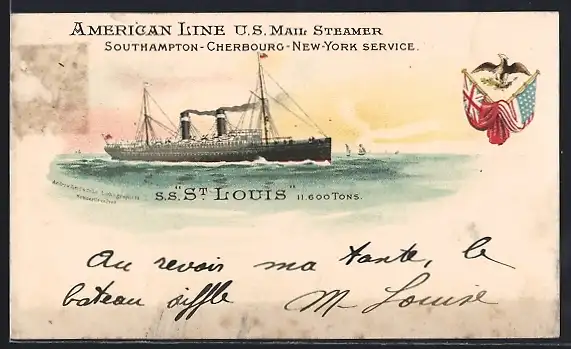 AMERICAN LINE U.S. MAIL STEAMER
SOUTHAMPTON-CHERBOURG-NEW-YORK SERVICE.
S.S. "ST LOUIS" 11.600 TONS.
Au revoir ma tante, le
bateau siffle M Louise